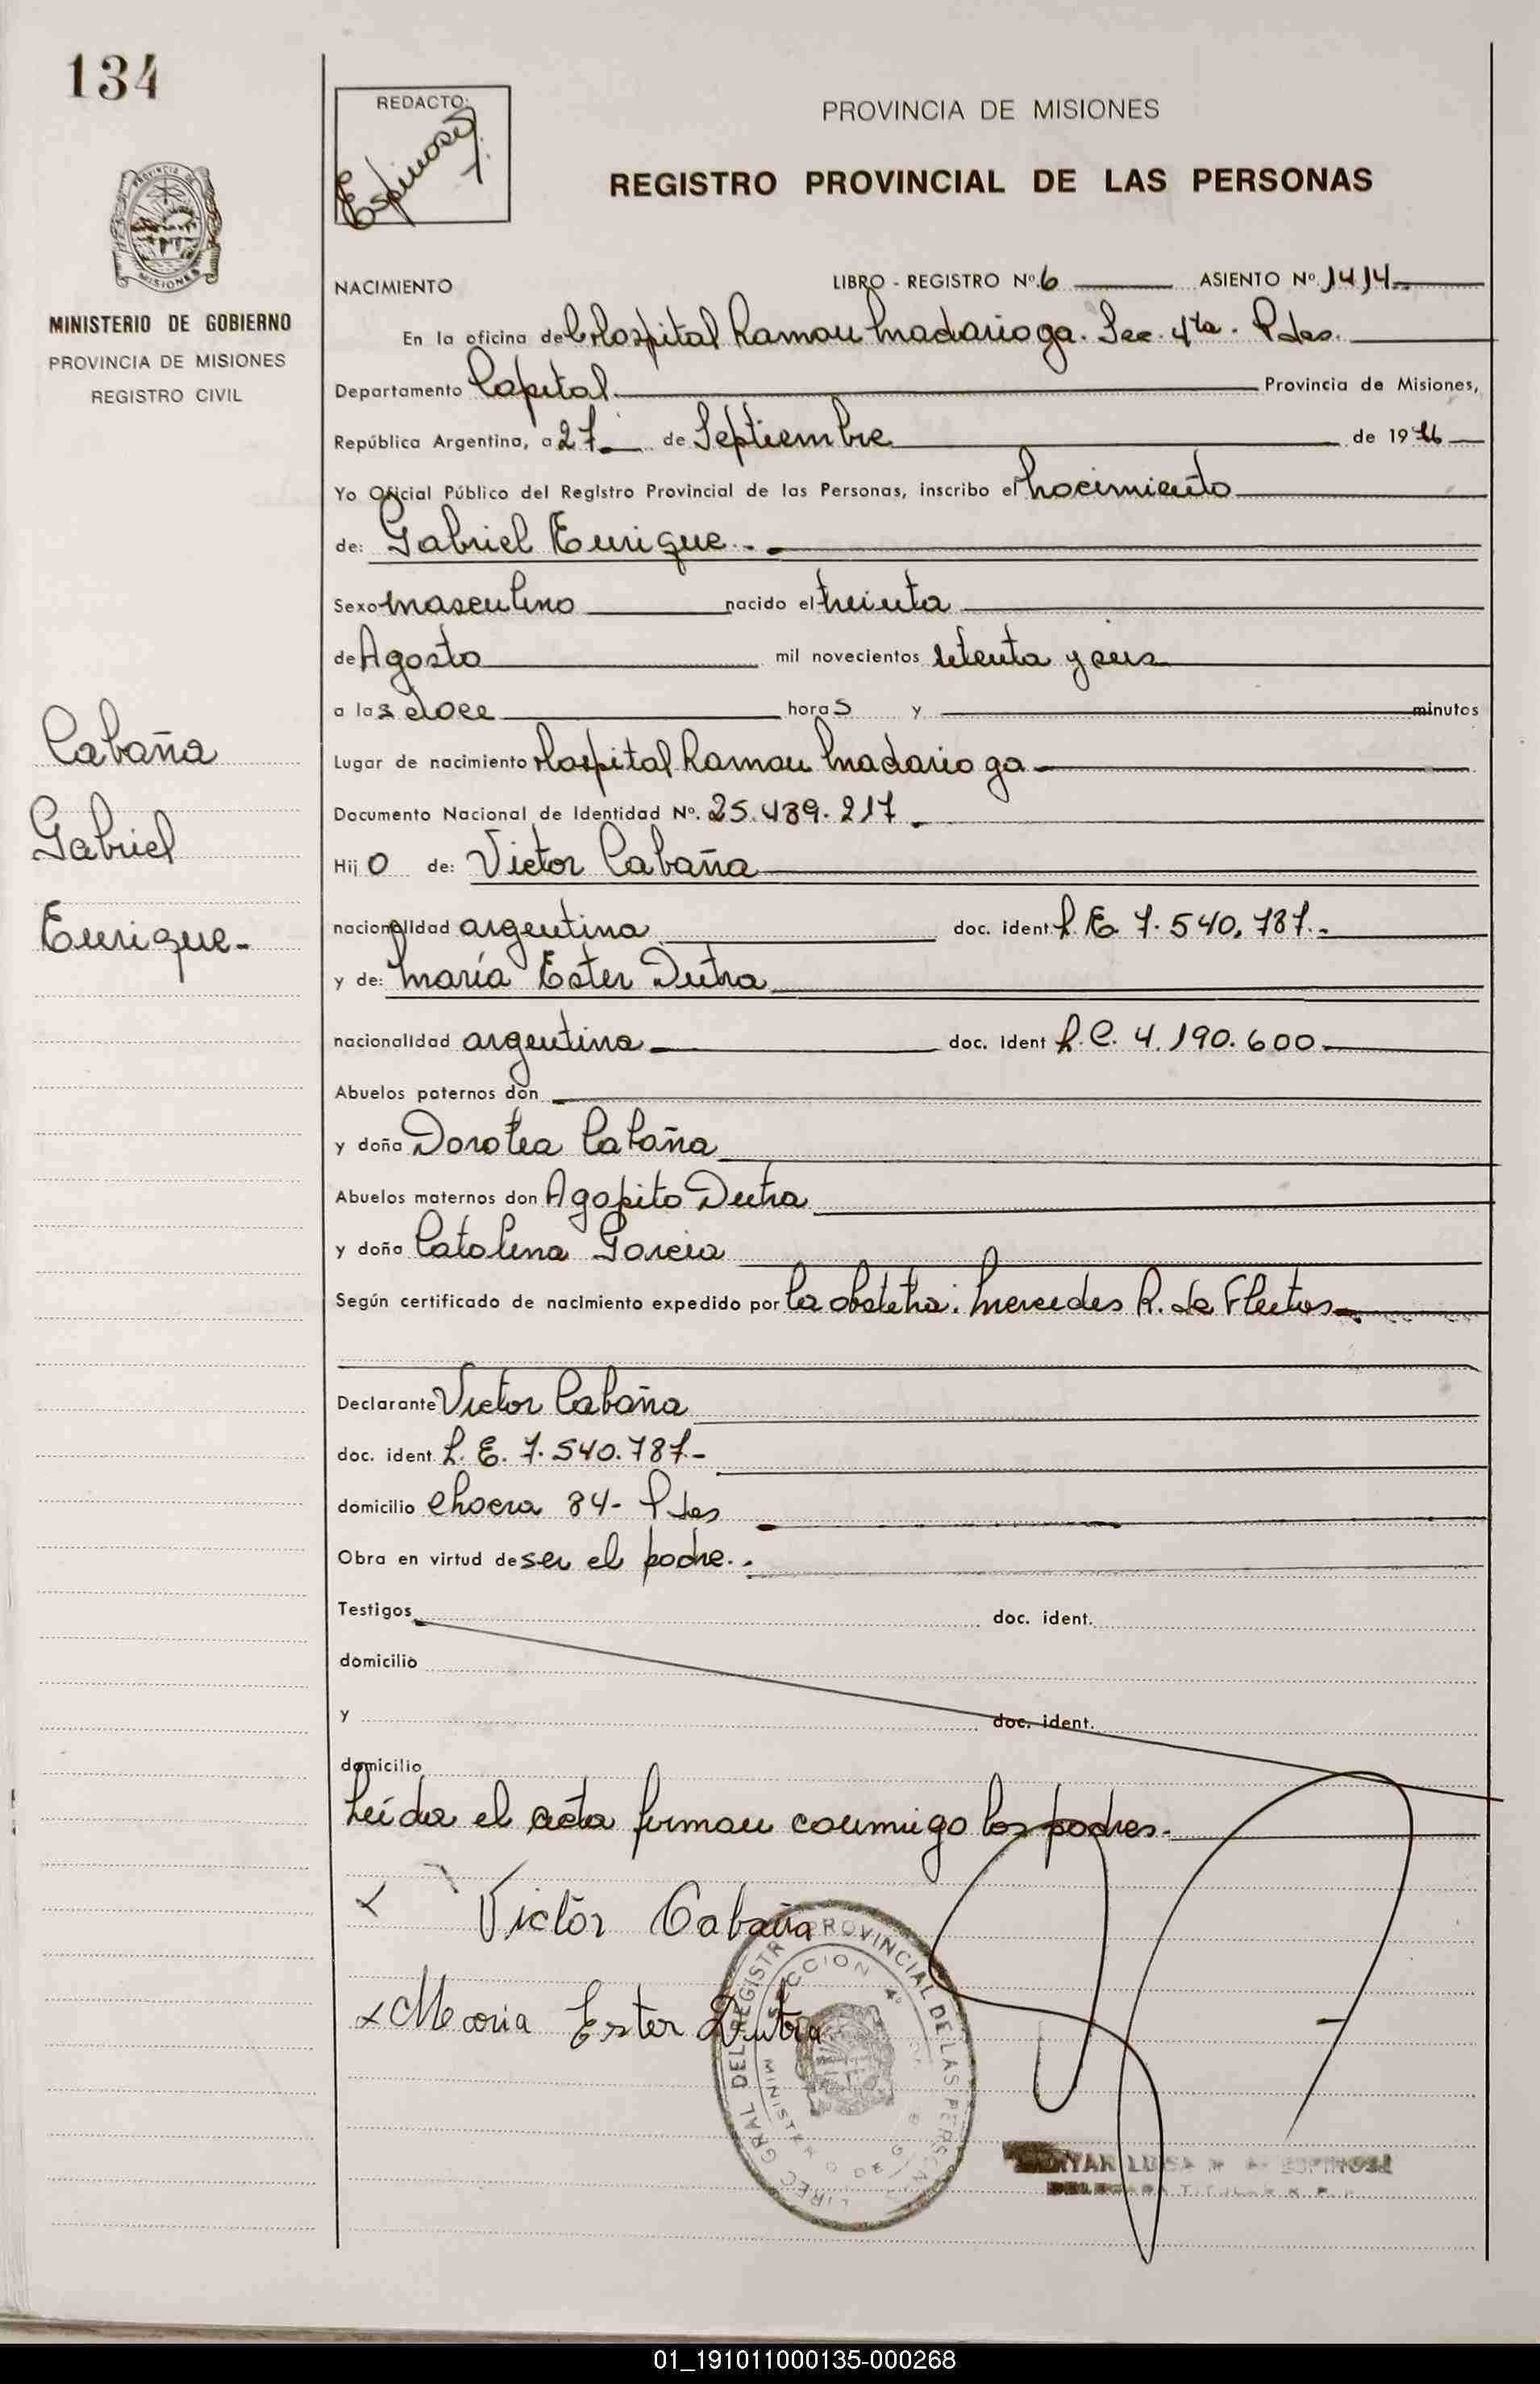 134
REDACTO:
Espinosa
PROVINCIA DE MISIONES
REGISTRO PROVINCIAL DE LAS PERSONAS
PROVINCIA DE MISIONES
MINISTERIO DE GOBIERNO
PROVINCIA DE MISIONES
REGISTRO CIVIL
NACIMIENTO LIBRO - REGISTRO Nº. 6 ASIENTO Nº 1414
En la oficina del Hospital Ramon Madariaga. Sec. 4ta. Pdas.
Departamento Capital Provincia de Misiones,
República Argentina, a 27 de Septiembre de 1976
Yo Oficial Público del Registro Provincial de las Personas, inscribo el nacimiento
de: Gabriel Enrique.-
Sexo masculino nacido el treinta
de Agosto mil novecientos setenta y seis
a las doce horas y minutos
Lugar de nacimiento Hospital Ramon Madariaga
Documento Nacional de Identidad Nº. 25.439.217
Hijo de: Victor Cabaña
nacionalidad argentina doc. ident L.E. 7.540.787.-
y de: María Ester Dutra
nacionalidad argentina doc. ident L.C. 4.190.600
Abuelos paternos don
y doña Dorotea Cabaña
Abuelos maternos don Agapito Dutra
y doña Catalina Garcia
Según certificado de nacimiento expedido por la obstetra: Mercedes R. de Fleitas
Declarante Victor Cabaña
doc. ident L.E. 7.540.787.-
domicilio chacra 84- Pdas
Obra en virtud de ser el padre.-
Testigos doc. ident.
domicilio
y doc. ident.
domicilio
Leída el acta firman conmigo los padres.-
Victor Cabaña
Maria Ester Dutra
Cabaña
Gabriel
Enrique-
DIREC GRAL DEL REGISTRO PROVINCIAL DE LAS PERSONAS
SECCION 4º
MINISTERIO DE G
LUISA ESPINOSA
DELEGADA TITULAR R. P. P.
01_191011000135-000268